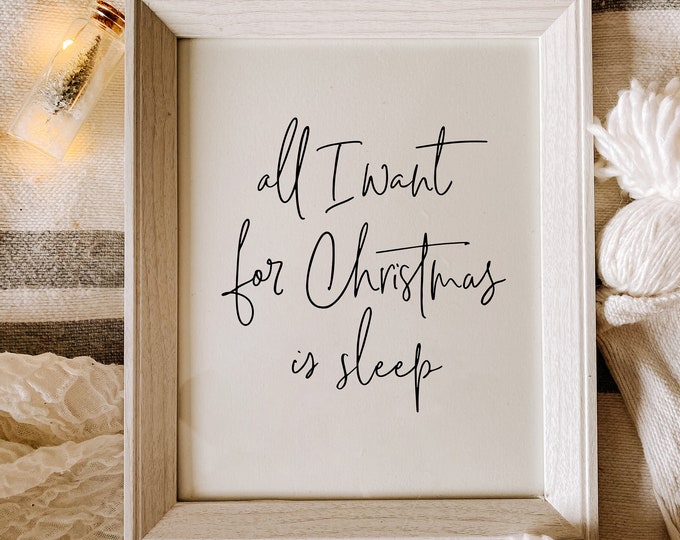 all I want
for Christmas
is sleep